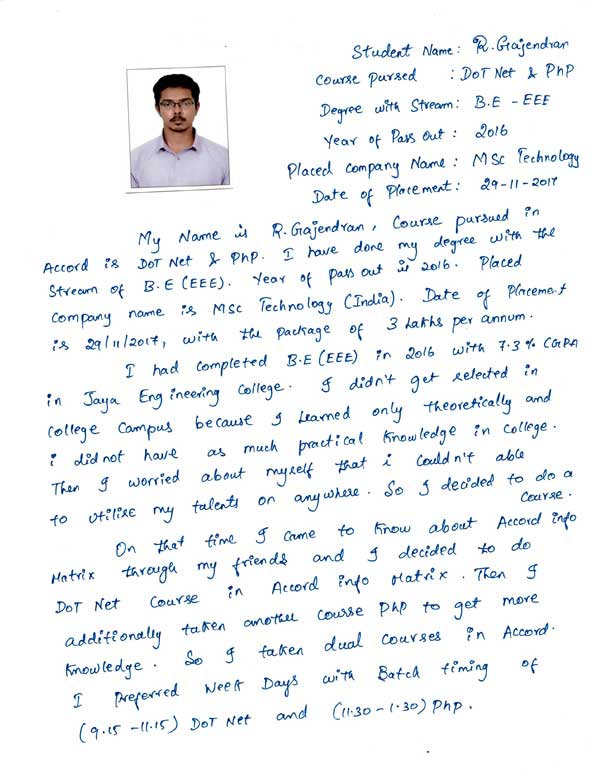 Student Name: R.Gajendran
Course pursed : DoT Net & PhP
Degree with Stream: B.E - EEE
Year of Pass Out : 2016
Placed Company Name : MSc Technology
Date of Placement: 29-11-2017
My Name is R.Gajendran, Course pursued in
Accord is DoT Net & PhP. I have done my degree with the
Stream of B.E (EEE). Year of pass out is 2016. Placed
company name is MSc Technology (India). Date of Placement
is 29/11/2017, with the package of 3 Lakhs per annum.
I had completed B.E (EEE) in 2016 with 7.3 % CGPA
in Jaya Engineering College. I didn't get selected in
College Campus because I Learned only theoretically and
i did not have as much practical knowledge in college.
Then I worried about myself that i couldn't able
to utilise my talents on anywhere. So I decided to do a
Course.
On that time I came to know about Accord info
Matrix through my friends and I decided to do
DoT Net Course in Accord info Matrix. Then I
additionally taken another course PhP to get more
knowledge. So I taken dual courses in Accord.
I Preferred Week Days with Batch timing of
(9.15 - 11.15) DoT Net and (11.30 - 1.30) PhP.